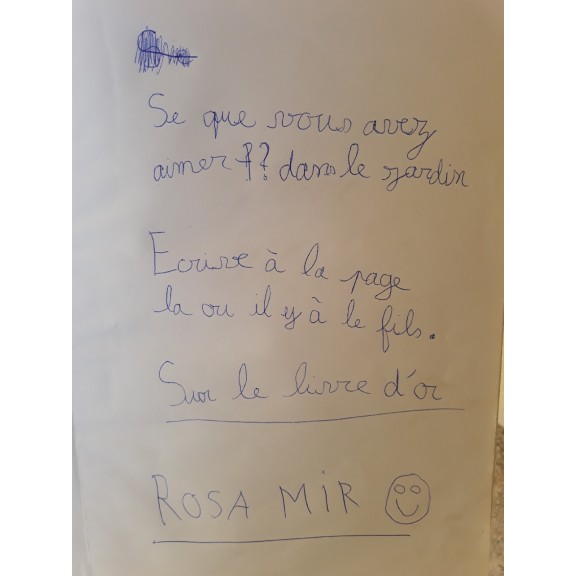 Se que vous avez
aimer ?? dans le jardin
Ecrire à la page
la ou il y à le fils.
Sur le livre d'or
ROSA MIR